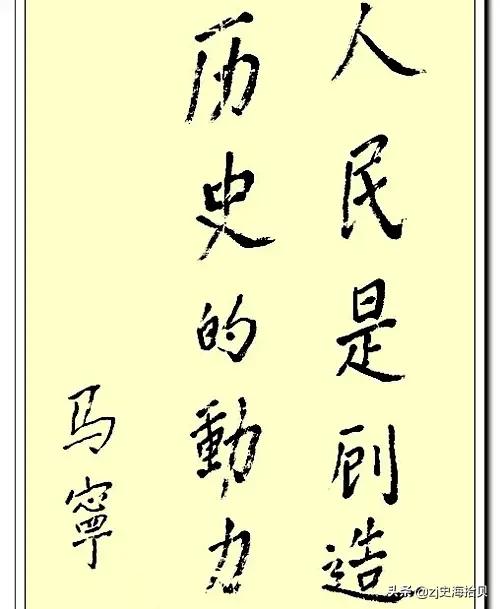 人民是创造
历史的動力
马寧
头条@zj史海拾贝